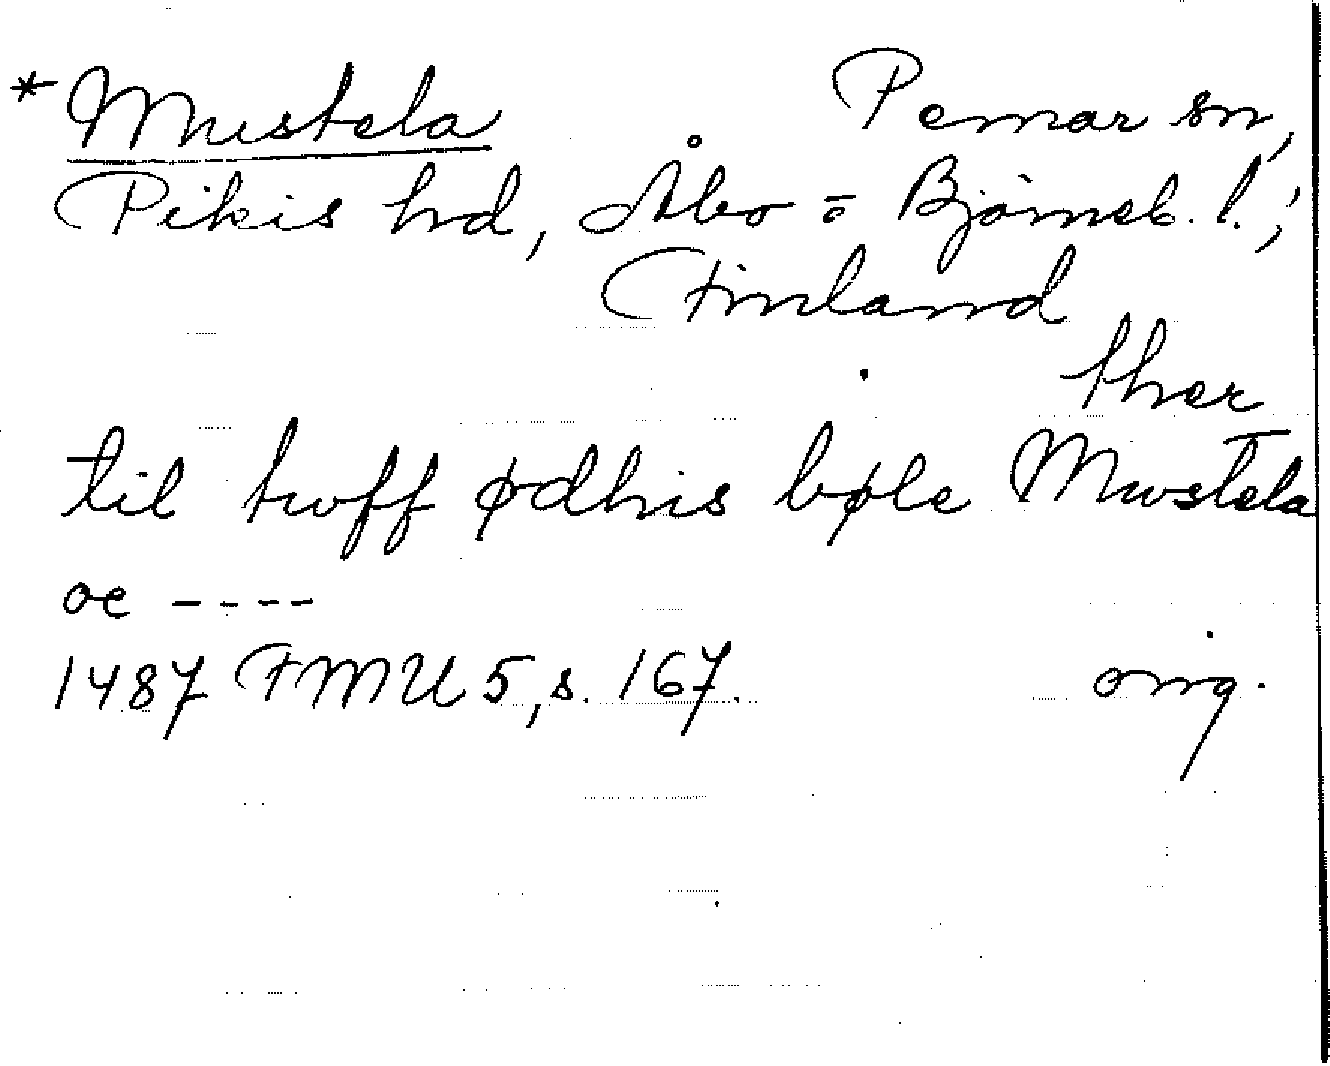 * Mustela Pemar sn,
Pikis hd, Åbo = Björneb. l.;
Finland
ther
til twff ødhis bøle Mwstela
oc ----
1487 FMU 5, s. 167. orig.